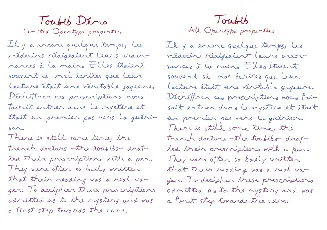 Toubib Demo
With Opentype properties
Il y a encore quelque temps, les
médecins rédigeaient leurs ordon-
nances à la main. Elles étaient
souvent si mal écrites que leur
lecture était une véritable gageure.
Déchiffrer ces prescriptions nous
faisait entrer dans le mystère et
était un premier pas vers la guéri-
son.
There is still some time, the
french doctors -the toubibs- draf-
ted their prescriptions with a pen.
They were often so badly written
that their reading was a real wa-
ger. To decipher these prescriptions
admitted us to the mystery and was
a first step towards the cure.
Toubib
Opentype properties
Il y a encore quelque temps, les
médecins rédigeaient leurs ordon-
nances à la main. Elles étaient
souvent si mal écrites que leur
lecture était une véritable gageure.
Déchiffrer ces prescriptions nous fai-
sait entrer dans le mystère et était
un premier pas vers la guérison.
There is still some time, the
french doctors -the toubibs- draf-
ted their prescriptions with a pen.
They were often so badly written
that their reading was a real wa-
ger. To decipher these prescriptions
admitted us to the mystery and was
a first step towards the cure.